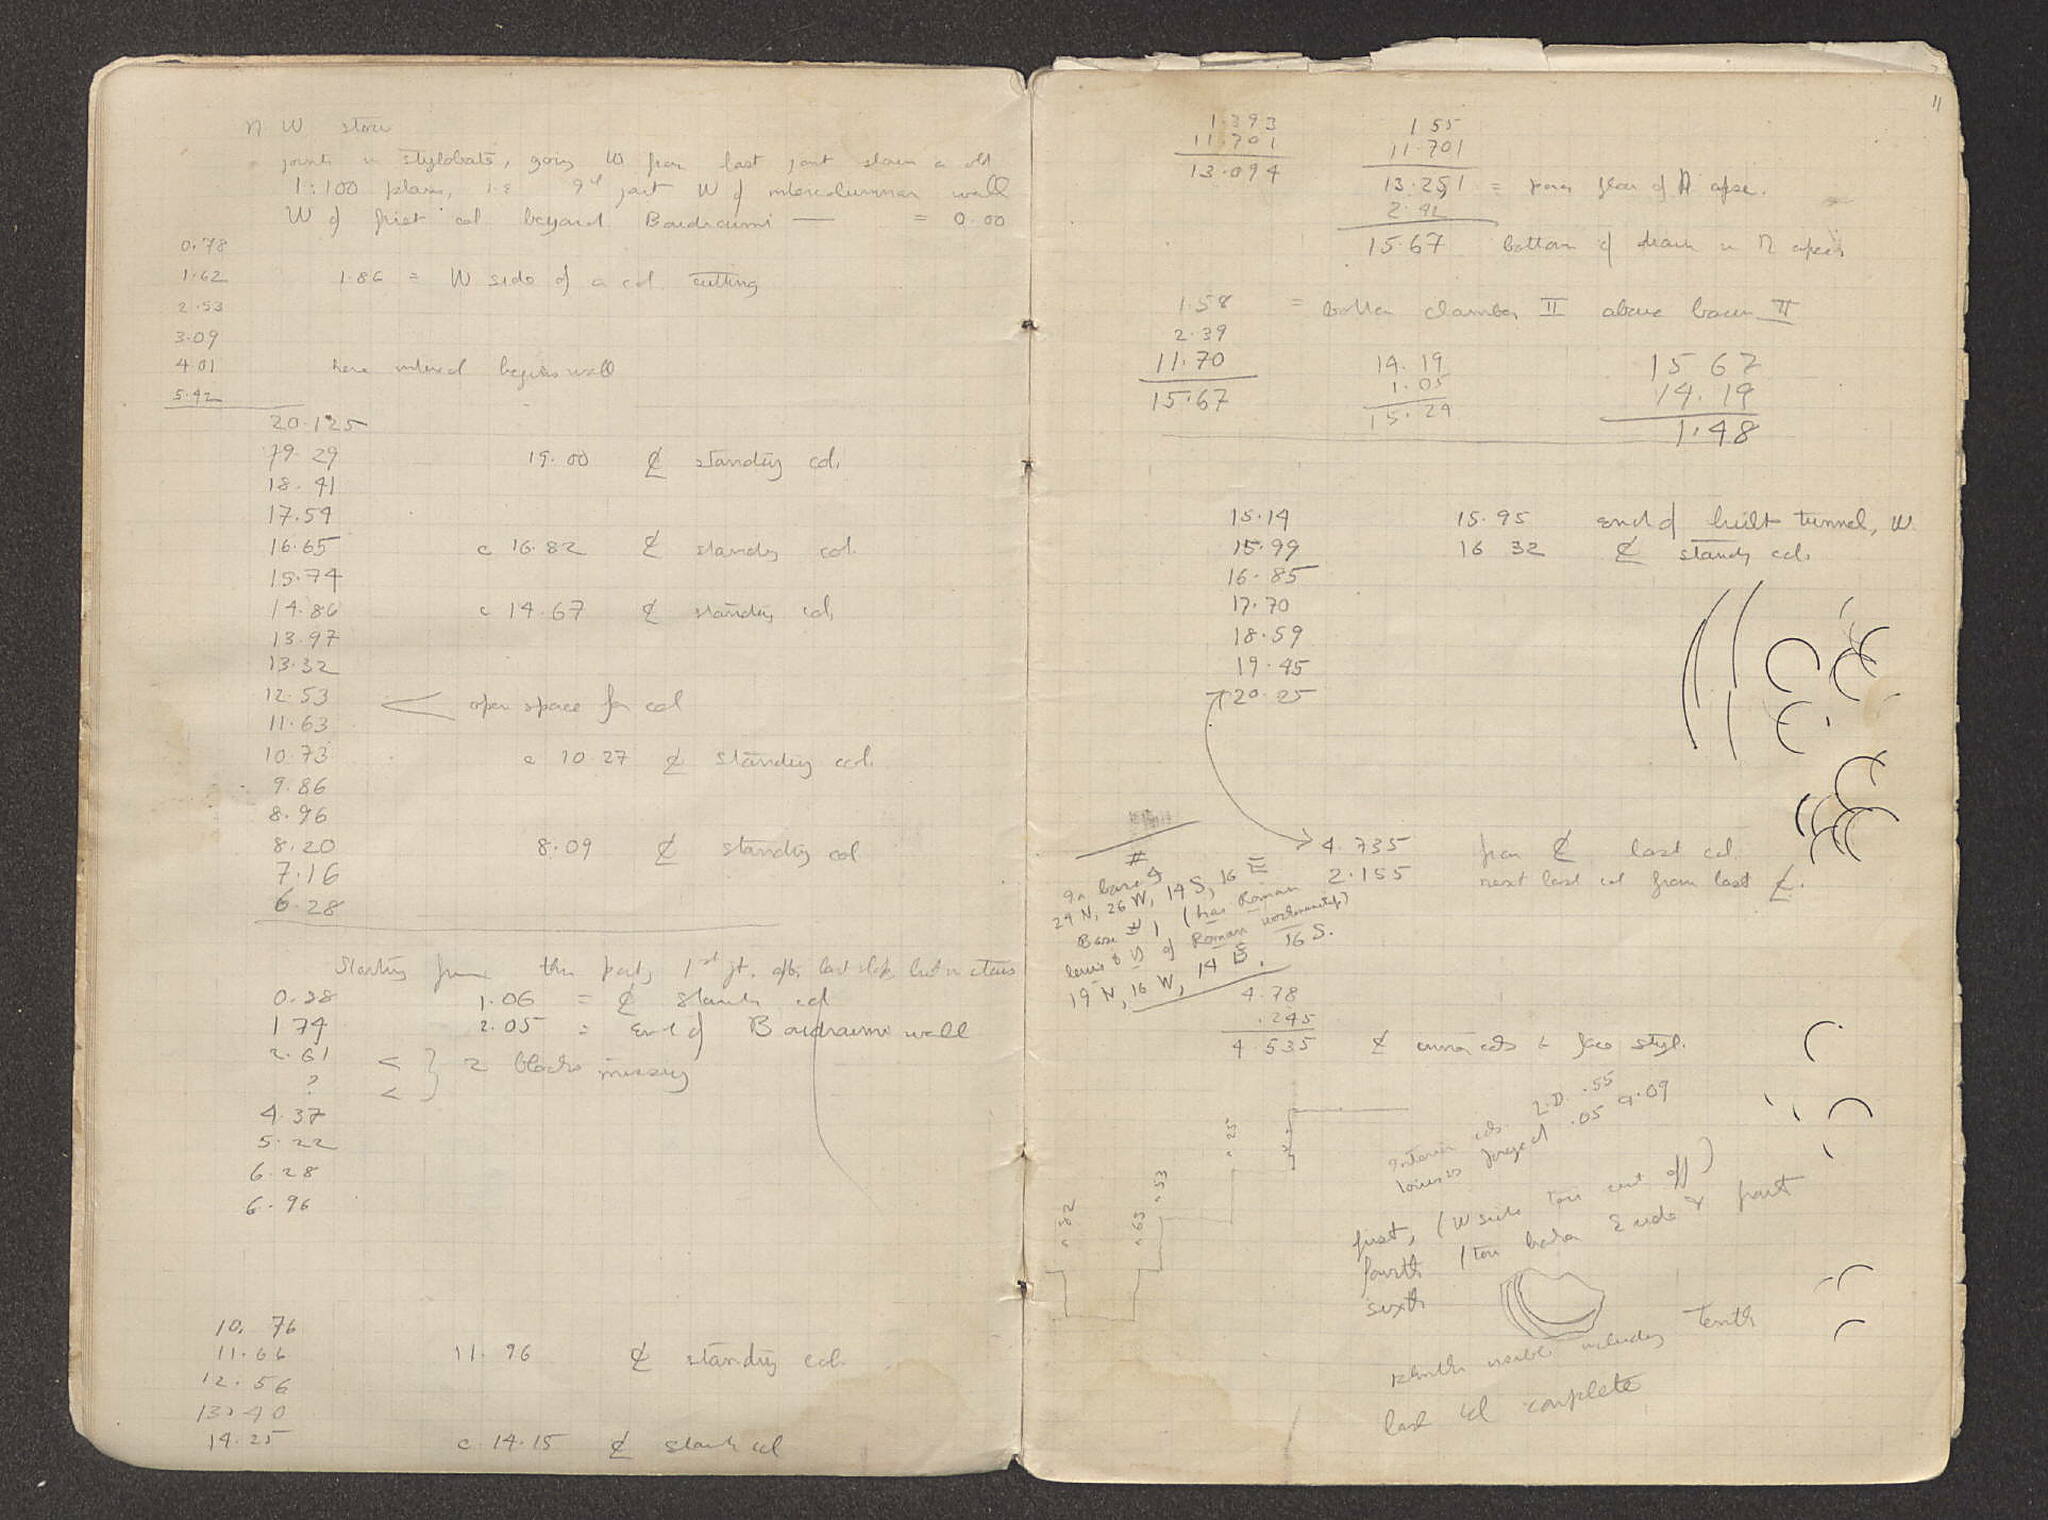 N W stoa
joints in stylobate, going W from last joint shown on old
1:100 plan, i.e. 9th joint W of intercolumnar wall
W of first col beyond Boudroumi — = 0.00
0.78
1.62 1.86 = W side of a col cutting
2.53
3.09
4.01 here begins wall
5.42
20.125
19.29 19.00 ℄ standing col.
18.41
17.54
16.65 c 16.82 ℄ standing col.
15.74
14.86 c 14.67 ℄ standing col.
13.97
13.32
12.53 < open space for col
11.63
10.73 c 10.27 ℄ standing col.
9.86
8.96
8.20 8.09 ℄ standing col
7.16
6.28
Starting from this part, 1st jt. last
0.28 1.06 = ℄ stand col
1.74 2.05 = End of Boudroumi wall
2.61 < } 2 blocks missing
? <
4.37
5.22
6.28
6.96
10.76
11.66 11.96 ℄ standing col.
12.56
13.40
14.25 c.14.15 ℄ stand col
11
1.393 1.55
11.701 11.701
13.094 13.251 = floor of N apse.
2.42
15.67 bottom of drain in N apse
1.58 = bottom chamber II above II
2.39
11.70 14.19 15 67
15.67 1.05 14.19
15.24 1.48
15.14 15.95 end of built tunnel, W.
15.99 16 32 ℄ standg col.
16.85
17.70
18.59
19.45
20.25
4.735 from ℄ last col.
2.155 next last col from last ℄.
#
On base 4
24 N, 26 W, 14 S, 16 E
Base # 1 (has Roman
lewis & of Roman workmanship)
19 N, 16 W, 14 E. 16 S.
4.78
.245
4.535 ℄ inner cols to face styl.
.25
.53
.63
.32
Interior cols. L.D. .55
torus project .05 0.09
first, (W side torus cut off)
fourth (torus broken E side & part
sixth
plinth visible including tenth
last col complete